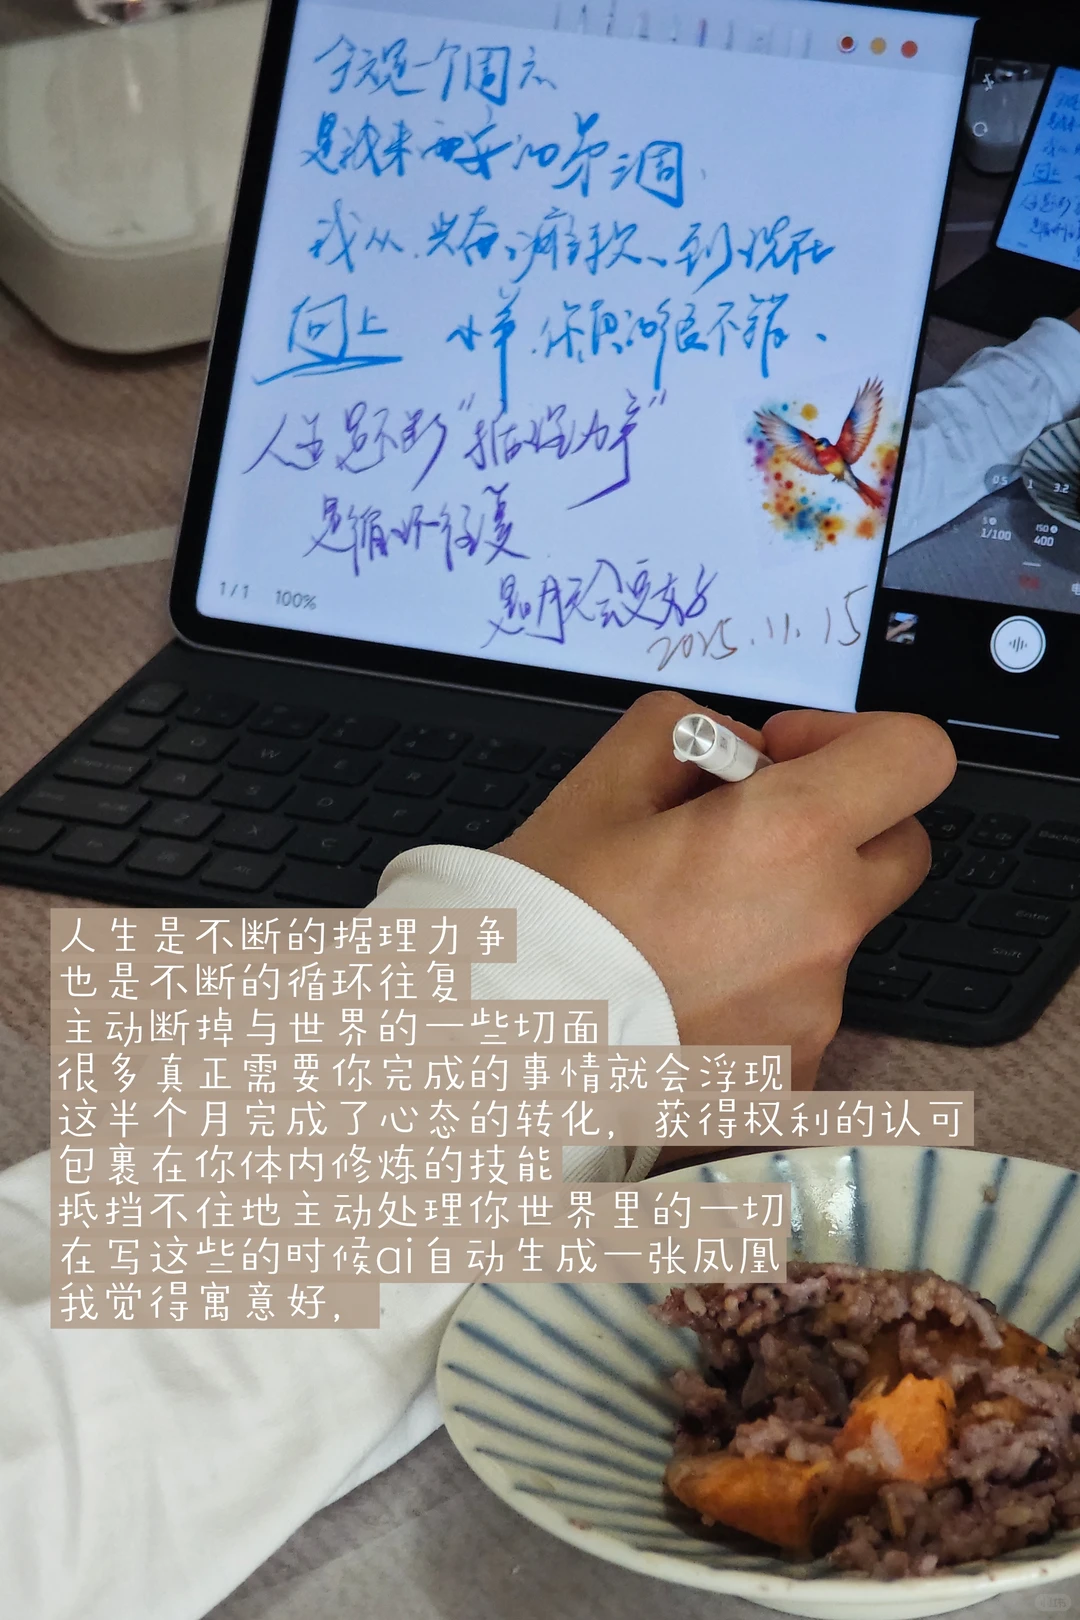 今天是一个周六
是我来西安的第三周
我从 兴奋、瘫软、到现在
向上 小羊 你真的很不错、
人生是不断"据理力争"
是循环往复
是明天会更好
2025.11.15
1/1 100%
0.5 1 3.2
S 1/100
ISO 400
Q W E R T
A S D F G
Z X C
Alt
Enter
Shift
人生是不断的据理力争
也是不断的循环往复
主动断掉与世界的一些切面
很多真正需要你完成的事情就会浮现
这半个月完成了心态的转化，获得权利的认可
包裹在你体内修炼的技能
抵挡不住地主动处理你世界里的一切
在写这些的时候ai自动生成一张凤凰
我觉得寓意好，